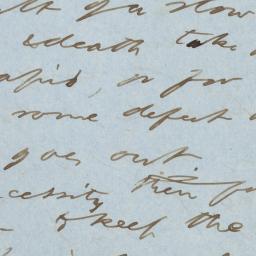 of a slow
& death take
rapid, or for
some defect
goes out
cessity then
to keep the